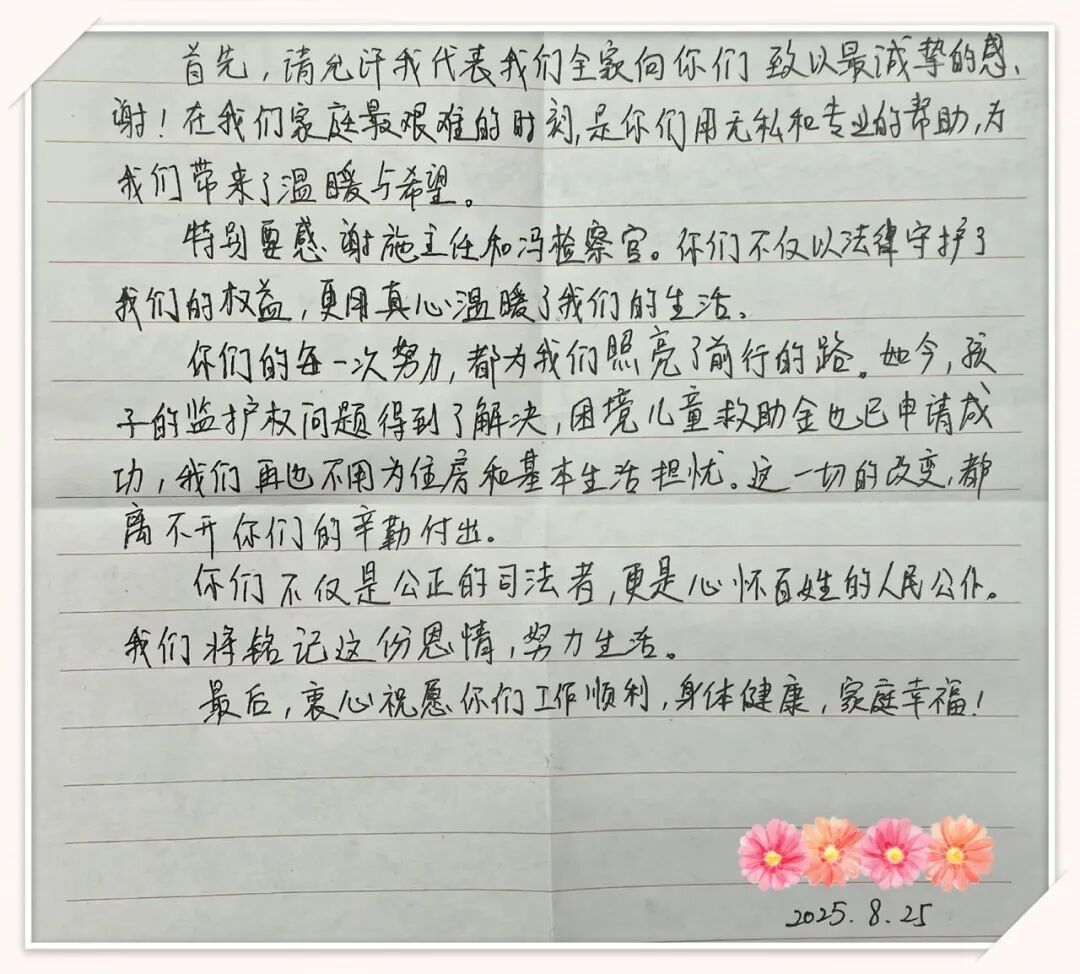 首先，请允许我代表我们全家向你们致以最诚挚的感
谢！在我们家庭最艰难的时刻，是你们用无私和专业的帮助，为
我们带来了温暖与希望。
特别要感谢施主任和冯检察官。你们不仅以法律守护了
我们的权益，更用真心温暖了我们的生活。
你们的每一次努力，都为我们照亮了前行的路。如今，孩
子的监护权问题得到了解决，困境儿童救助金也已申请成
功，我们再也不用为住房和基本生活担忧。这一切的改变，都
离不开你们的辛勤付出。
你们不仅是公正的司法者，更是心怀百姓的人民公仆。
我们将铭记这份恩情，努力生活。
最后，衷心祝愿你们工作顺利，身体健康，家庭幸福！
2025.8.25